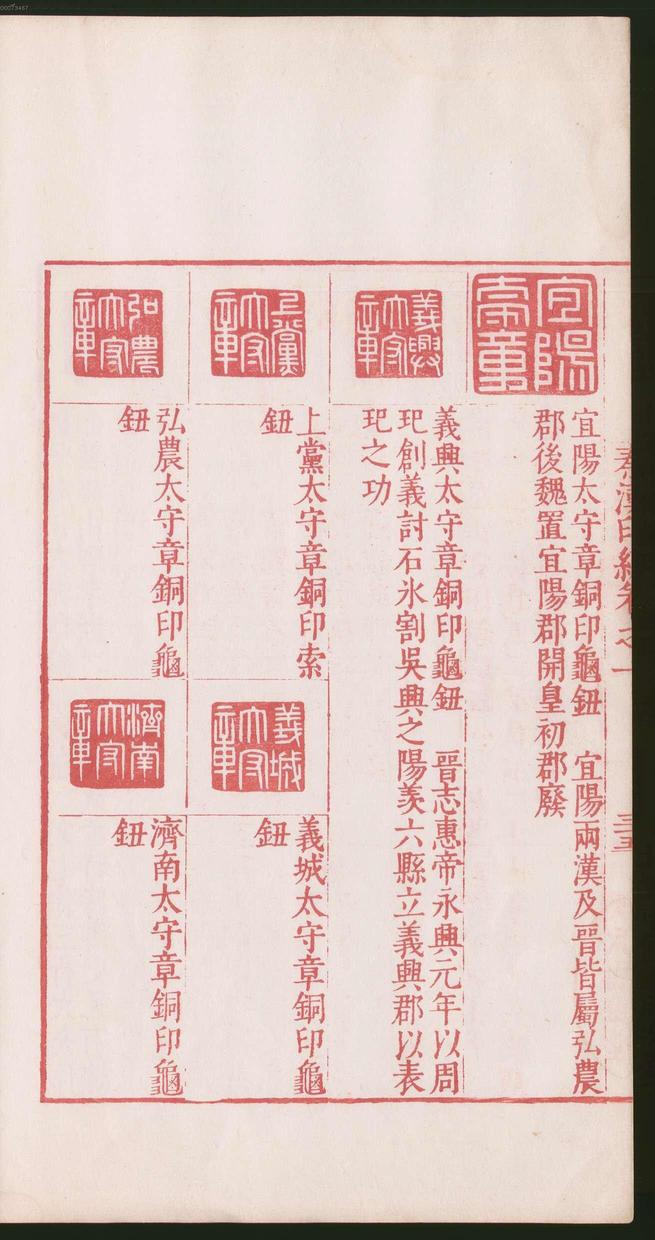 00073467
秦漢印統卷之一
三五
宜陽太守章
宜陽太守章銅印龜鈕　宜陽兩漢及晋皆屬弘農
郡後魏置宜陽郡開皇初郡廢
義興太守章
義興太守章銅印龜鈕　晋志惠帝永興元年以周
玘創義討石氷割吳興之陽羨六縣立義興郡以表
玘之功
上黨太守章
上黨太守章銅印索
鈕
義城太守章
義城太守章銅印龜
鈕
弘農太守章
弘農太守章銅印龜
鈕
濟南太守章
濟南太守章銅印龜
鈕